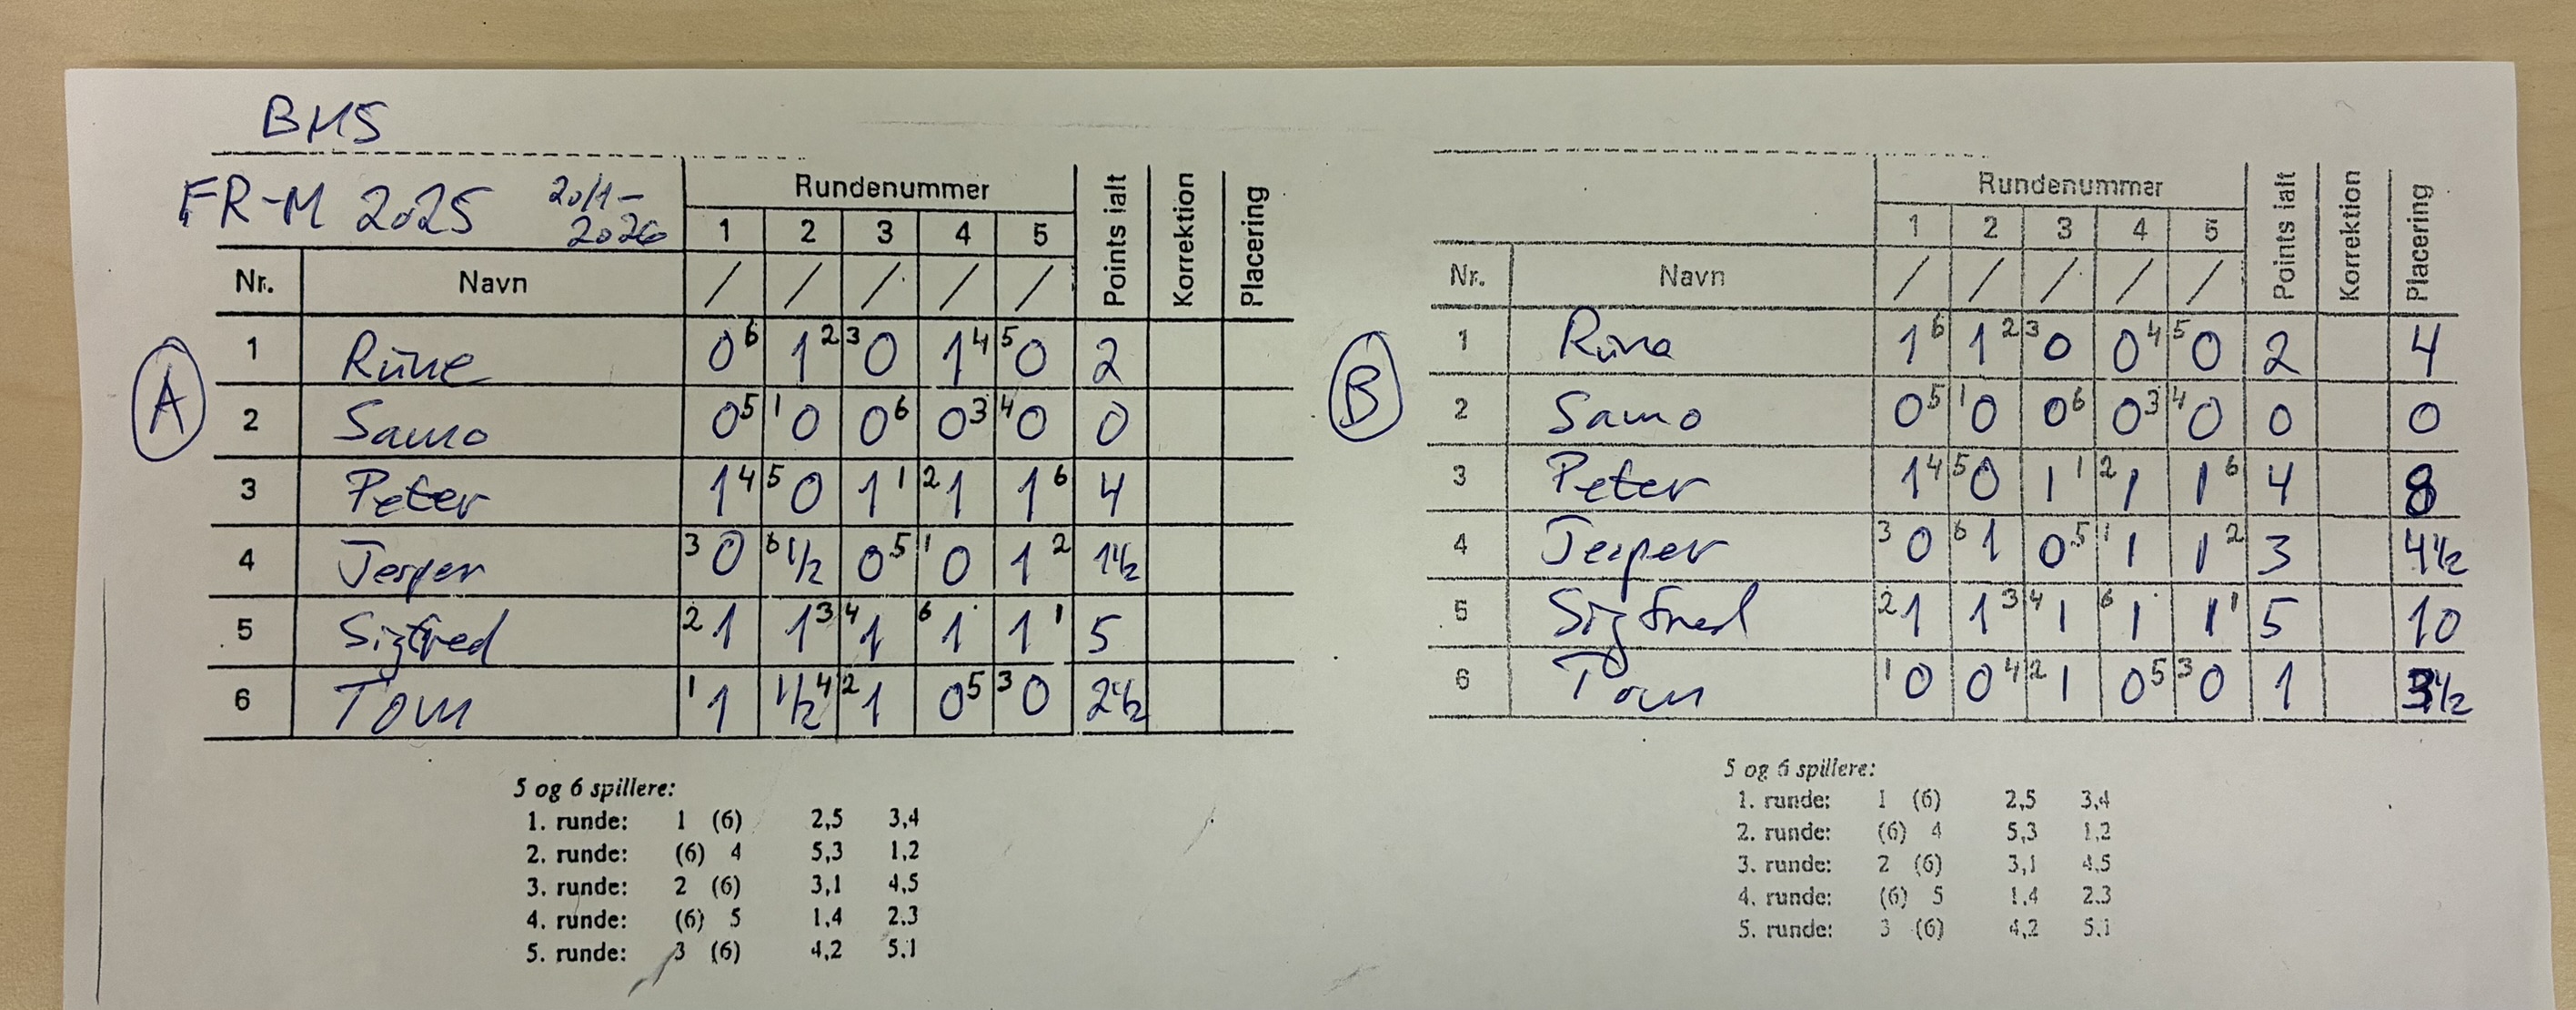 BMS
FR-M 2025 20/1-2026
Rundenummer
1 2 3 4 5 Points ialt Korrektion Placering
Nr. Navn / / / / /
A
1 Rune 0 6 1 2 3 0 1 4 5 0 2
2 Samo 0 5 1 0 0 6 0 3 4 0 0
3 Peter 1 4 5 0 1 1 2 1 1 6 4
4 Jesper 3 0 6 1/2 0 5 1 0 1 2 1 1/2
5 Sigfred 2 1 1 3 4 1 6 1 1 1 5
6 Tom 1 1 1/2 4 2 1 0 5 3 0 2 1/2
5 og 6 spillere:
1. runde: 1 (6) 2,5 3,4
2. runde: (6) 4 5,3 1,2
3. runde: 2 (6) 3,1 4,5
4. runde: (6) 5 1,4 2.3
5. runde: 3 (6) 4,2 5,1
Rundenummer
1 2 3 4 5 Points ialt Korrektion Placering
Nr. Navn / / / / /
B
1 Rune 1 6 1 2 3 0 0 4 5 0 2 4
2 Samo 0 5 1 0 0 6 0 3 4 0 0 0
3 Peter 1 4 5 0 1 1 2 1 1 6 4 8
4 Jesper 3 0 6 1 0 5 1 1 1 2 3 4 1/2
5 Sigfred 2 1 1 3 4 1 6 1 1 1 5 10
6 Tom 1 0 0 4 2 1 0 5 3 0 1 3 1/2
5 og 6 spillere:
1. runde: 1 (6) 2,5 3,4
2. runde: (6) 4 5,3 1,2
3. runde: 2 (6) 3,1 4,5
4. runde: (6) 5 1,4 2.3
5. runde: 3 (6) 4,2 5,1